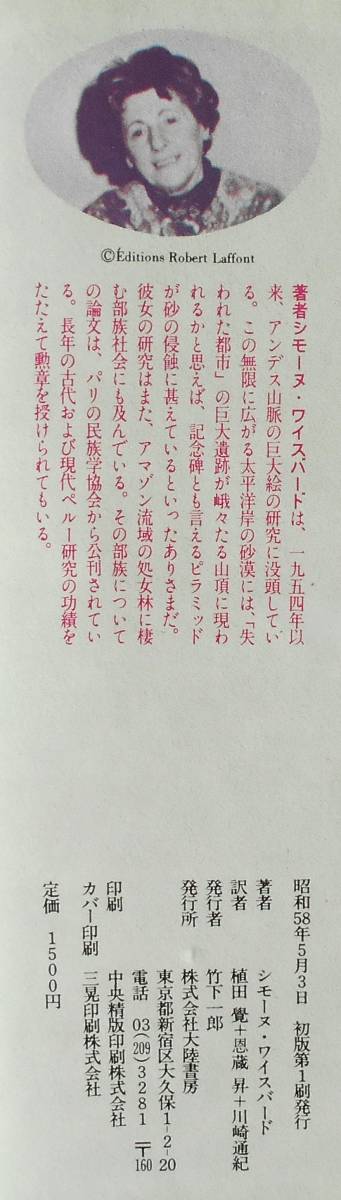 ©Éditions Robert Laffont
著者シモーヌ・ワイスバードは、一九五四年以
来、アンデス山脈の巨大絵の研究に没頭してい
る。この無限に広がる太平洋岸の砂漠には、「失
われた都市」の巨大遺跡が峨々たる山頂に現わ
れるかと思えば、記念碑とも言えるピラミッド
が砂の侵蝕に甚えているといったありさまだ。
彼女の研究はまた、アマゾン流域の処女林に棲
む部族社会にも及んでいる。その部族について
の論文は、パリの民族学協会から公刊されてい
る。長年の古代および現代ペルー研究の功績を
たたえて勲章を授けられてもいる。
昭和58年5月3日 初版第1刷発行
著者 シモーヌ・ワイスバード
訳者 植田 覺+恩蔵 昇+川崎通紀
発行者 竹下一郎
発行所 株式会社大陸書房
東京都新宿区大久保1-2-20
電話 03(209)3281 〒160
印刷 中央精版印刷株式会社
カバー印刷 三晃印刷株式会社
定価 1500円